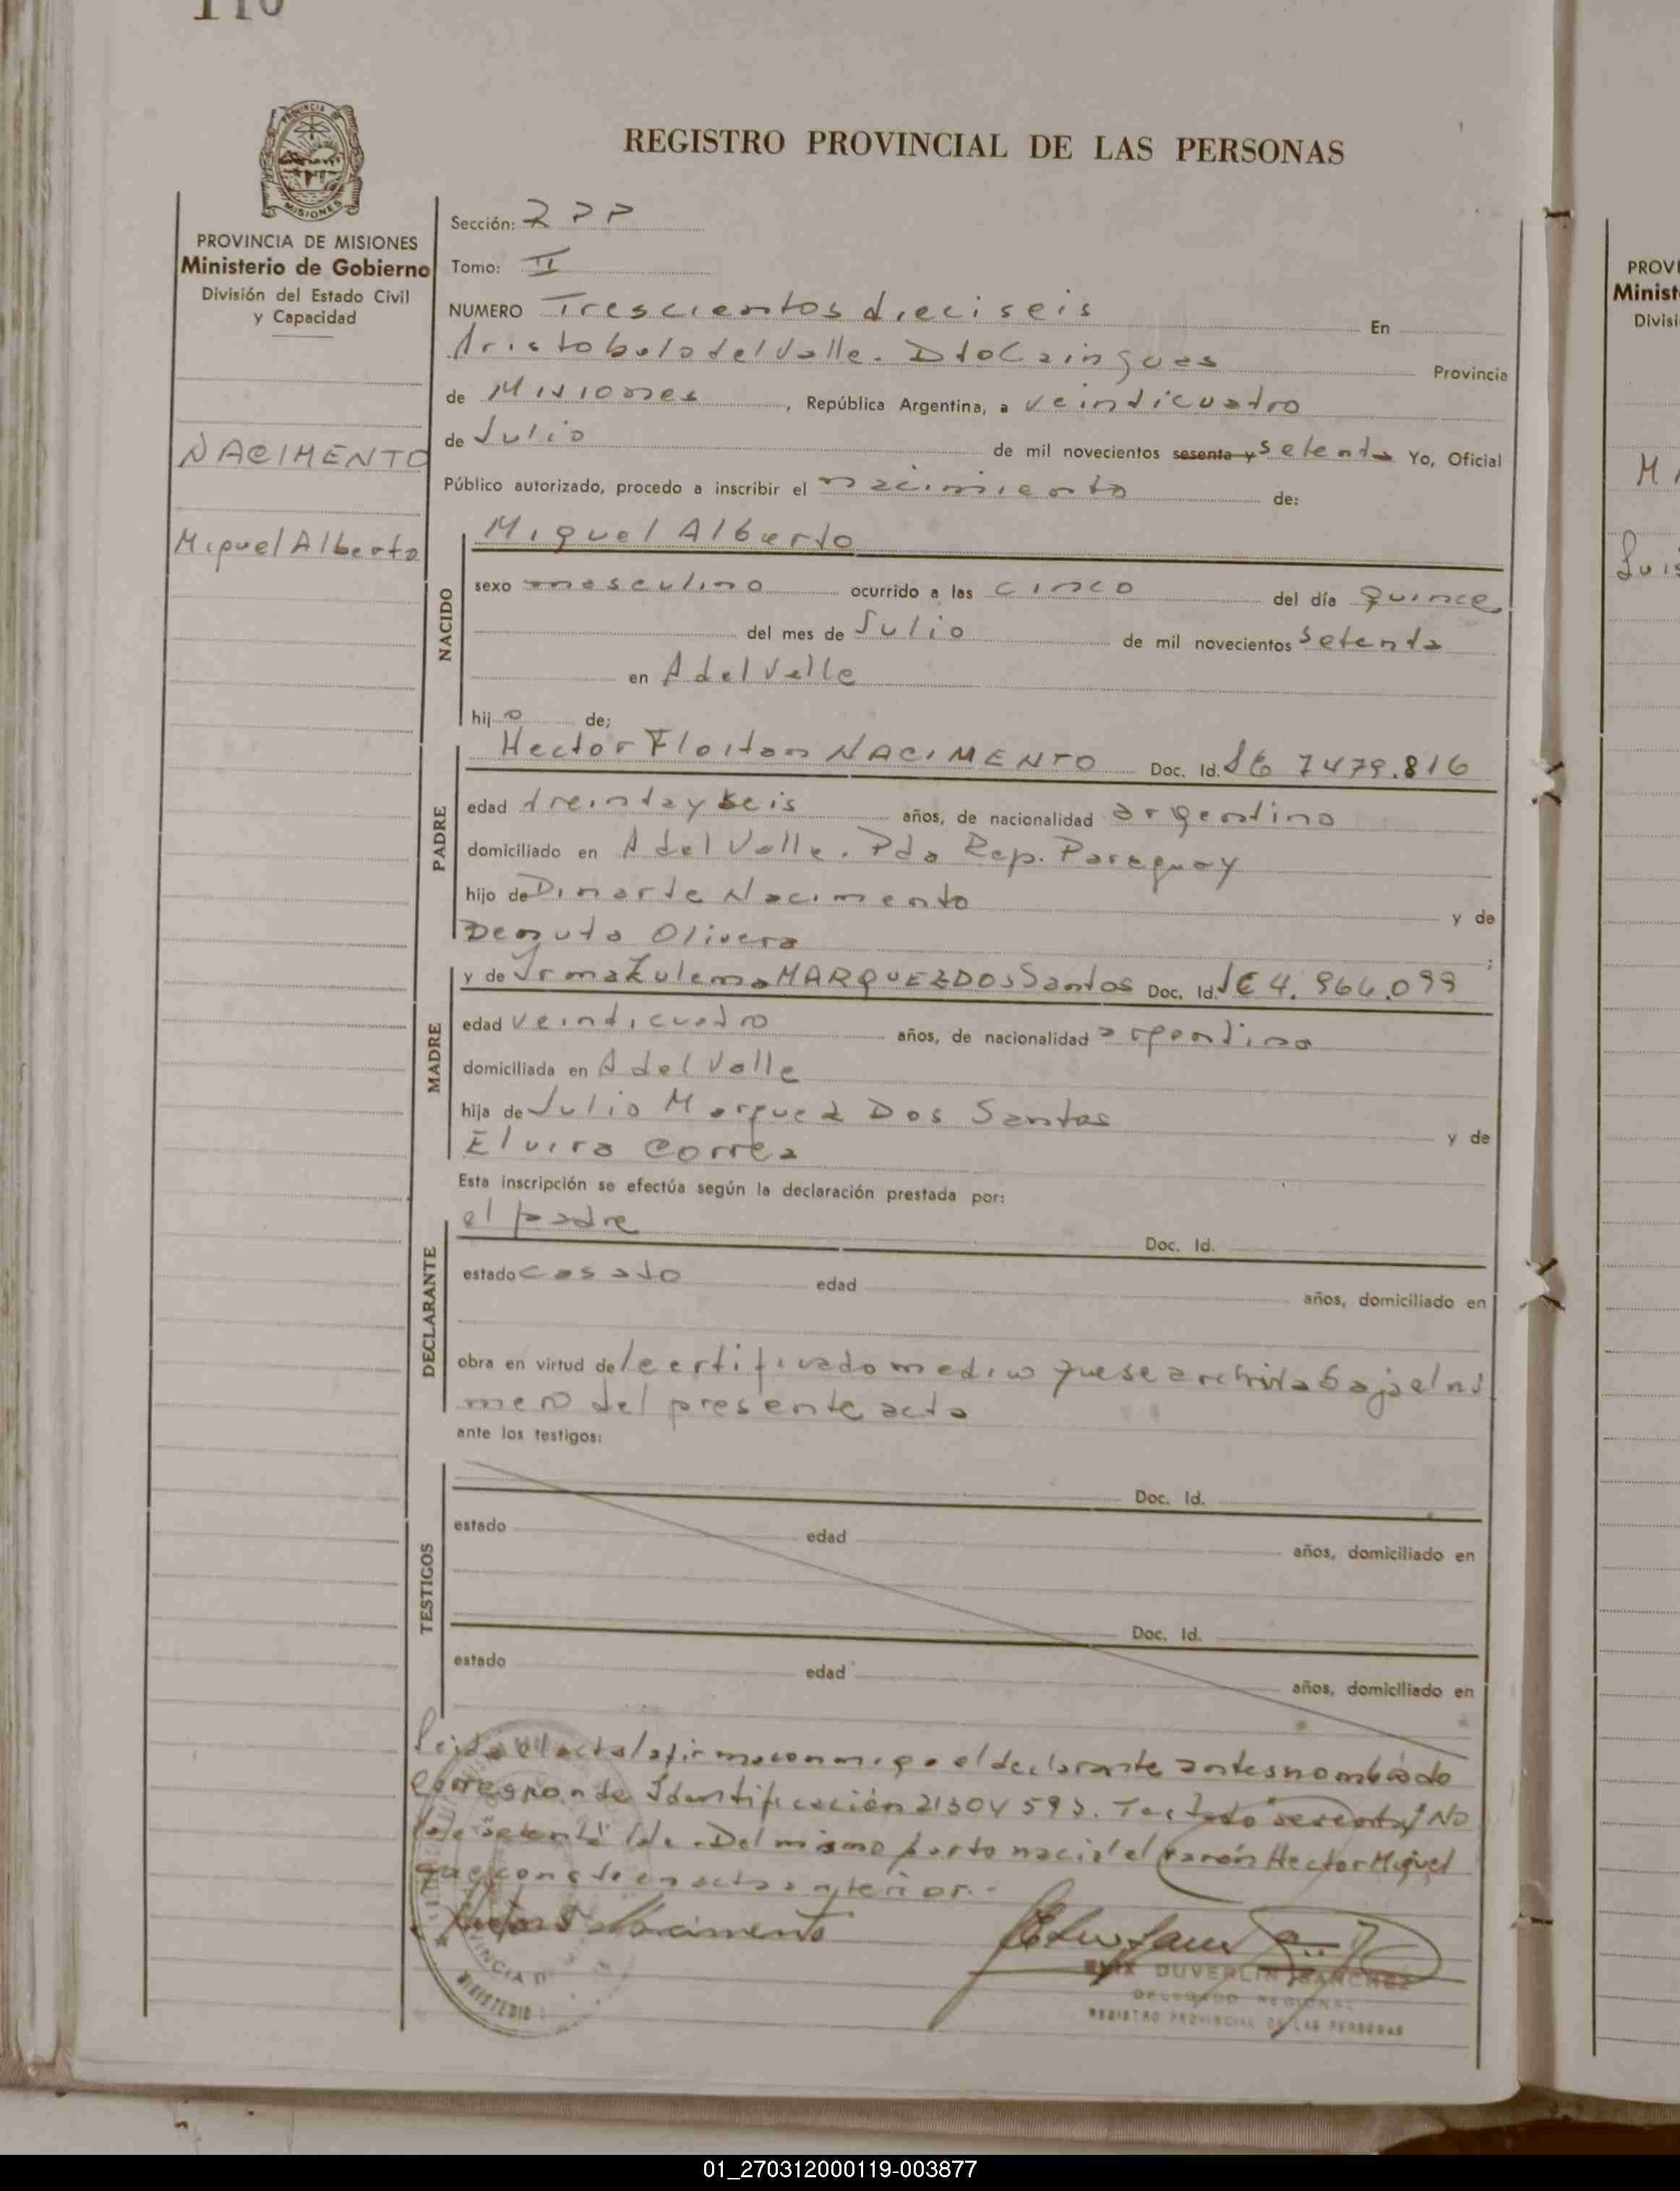 110
PROVINCIA
MISIONES
PROVINCIA DE MISIONES
Ministerio de Gobierno
División del Estado Civil
y Capacidad
NACIMENTO
Miguel Alberto
REGISTRO PROVINCIAL DE LAS PERSONAS
Sección: 2 PP
Tomo: II
NUMERO Trescientos dieciseis En
Aristobulo del Valle. Dto Cainguas Provincia
de Misiones, República Argentina, a veinticuatro
de Julio de mil novecientos sesenta y setenta Yo, Oficial
Público autorizado, procedo a inscribir el nacimiento de:
NACIDO
Miguel Alberto
sexo masculino ocurrido a las cinco del día quince
del mes de Julio de mil novecientos setenta
en A del Valle
hijo de;
PADRE
Hector Floitan NACIMENTO Doc. Id. LE 7479.816
edad treinta y seis años, de nacionalidad argentino
domiciliado en A del Valle. Pda Rep. Paraguay
hijo de Dinarte Nacimento y de
Denuta Olivera ;
MADRE
y de Irma Zulema MARQUEZ DOS Santos Doc. Id. LE 4.964.099
edad veinticuatro años, de nacionalidad argentina
domiciliada en A del Valle
hija de Julio Marquez Dos Santos y de
Elvira Correa
Esta inscripción se efectúa según la declaración prestada por:
DECLARANTE
el padre Doc. Id.
estado casado edad años, domiciliado en
obra en virtud del certificado medico que se archiva bajo el nú
mero del presente acta
ante los testigos:
TESTIGOS
Doc. Id.
estado edad años, domiciliado en
Doc. Id.
estado edad años, domiciliado en
Leida el acta la firma conmigo el declarante antes nombrado
Corresponde Identificación 21304593. Testado "sesenta y" No
Vale "setenta" Vale. Del mismo parto nació el varón Hector Miguel
que consta en acta anterior.-
Hector F Nacimento
DUVERLIN SANCHEZ
DELEGADO REGIONAL
REGISTRO PROVINCIAL DE LAS PERSONAS
MINISTERIO
PROVI
Minist
Divisi
M
Luis
01_270312000119-003877